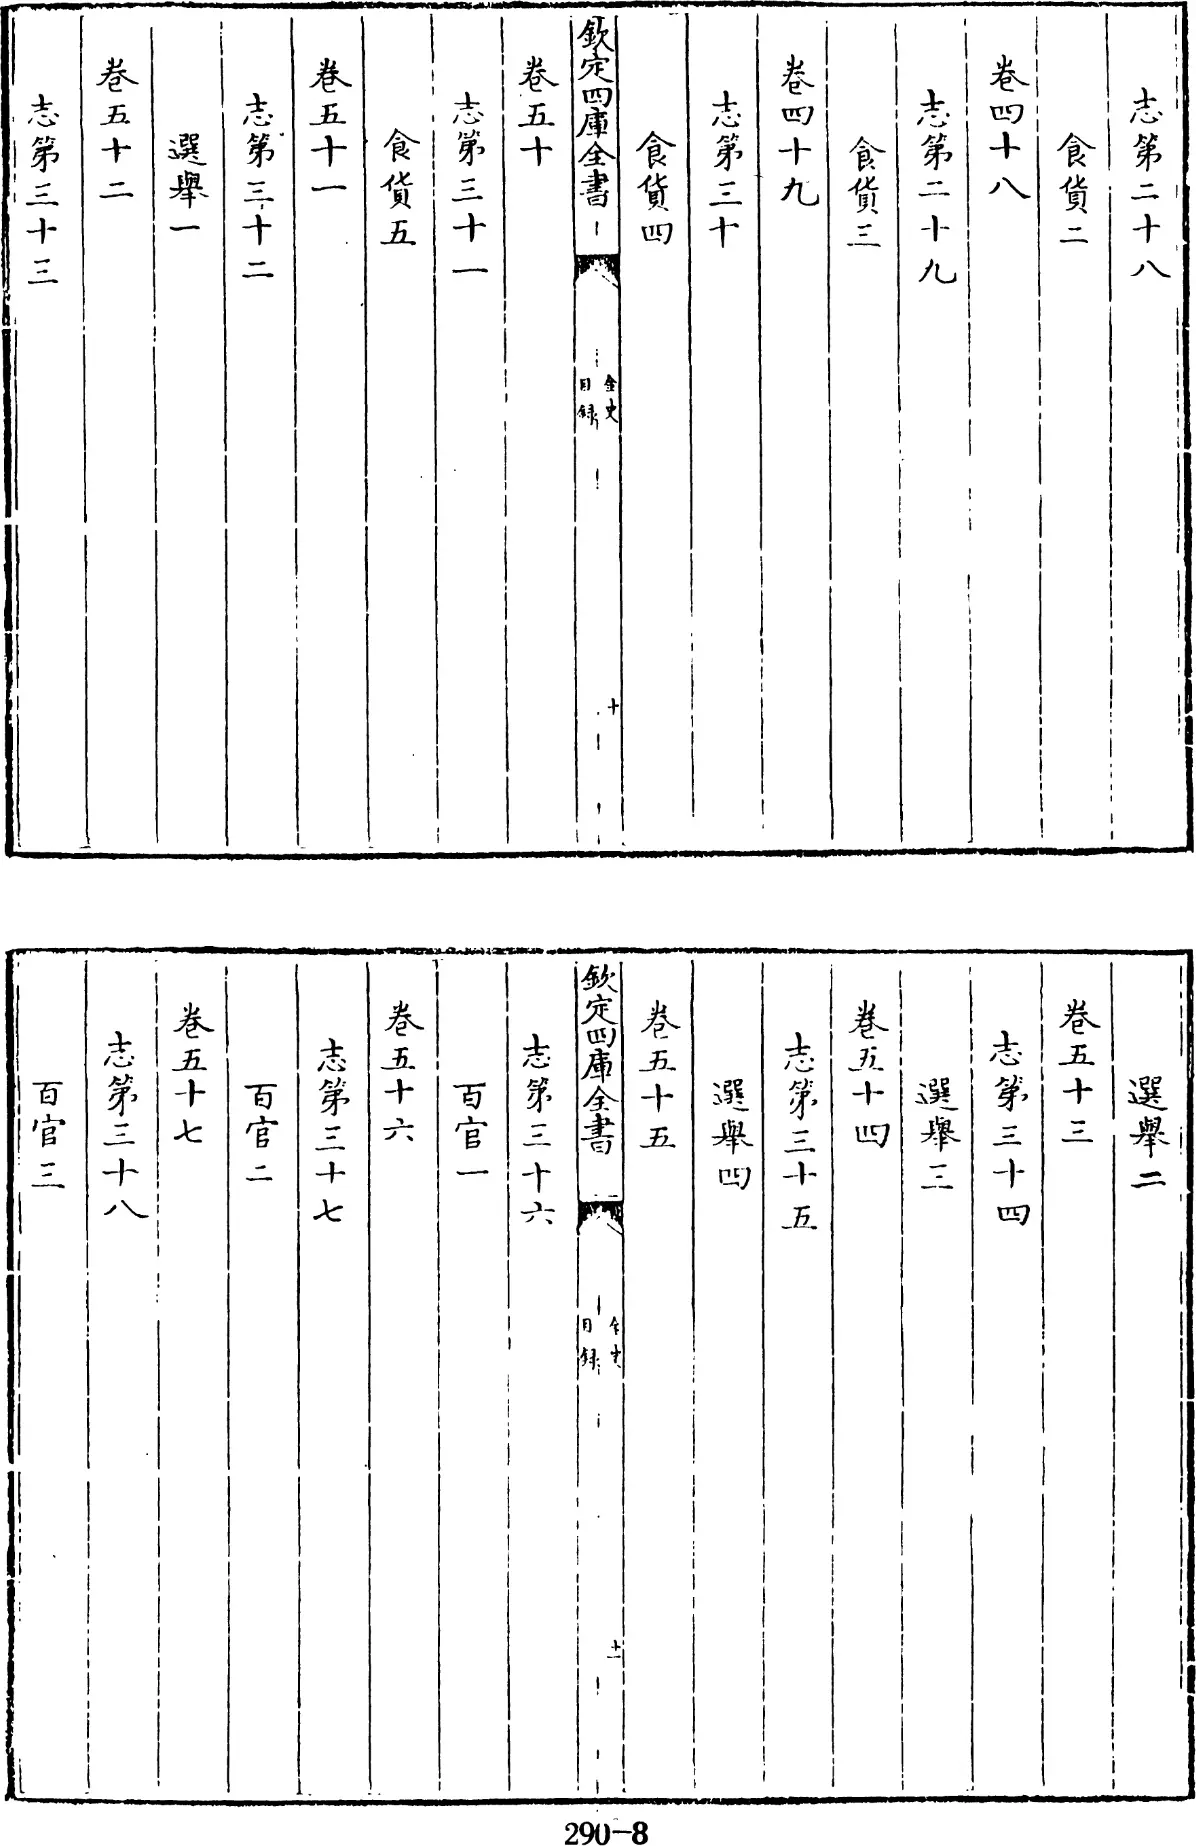 志第二十八
食貨二
卷四十八
志第二十九
食貨三
卷四十九
志第三十
食貨四
欽定四庫全書
金史
目録
十
卷五十
志第三十一
食貨五
卷五十一
志第三十二
選舉一
卷五十二
志第三十三
選舉二
卷五十三
志第三十四
選舉三
卷五十四
志第三十五
選舉四
卷五十五
欽定四庫全書
金史
目録
十一
志第三十六
百官一
卷五十六
志第三十七
百官二
卷五十七
志第三十八
百官三
290-8